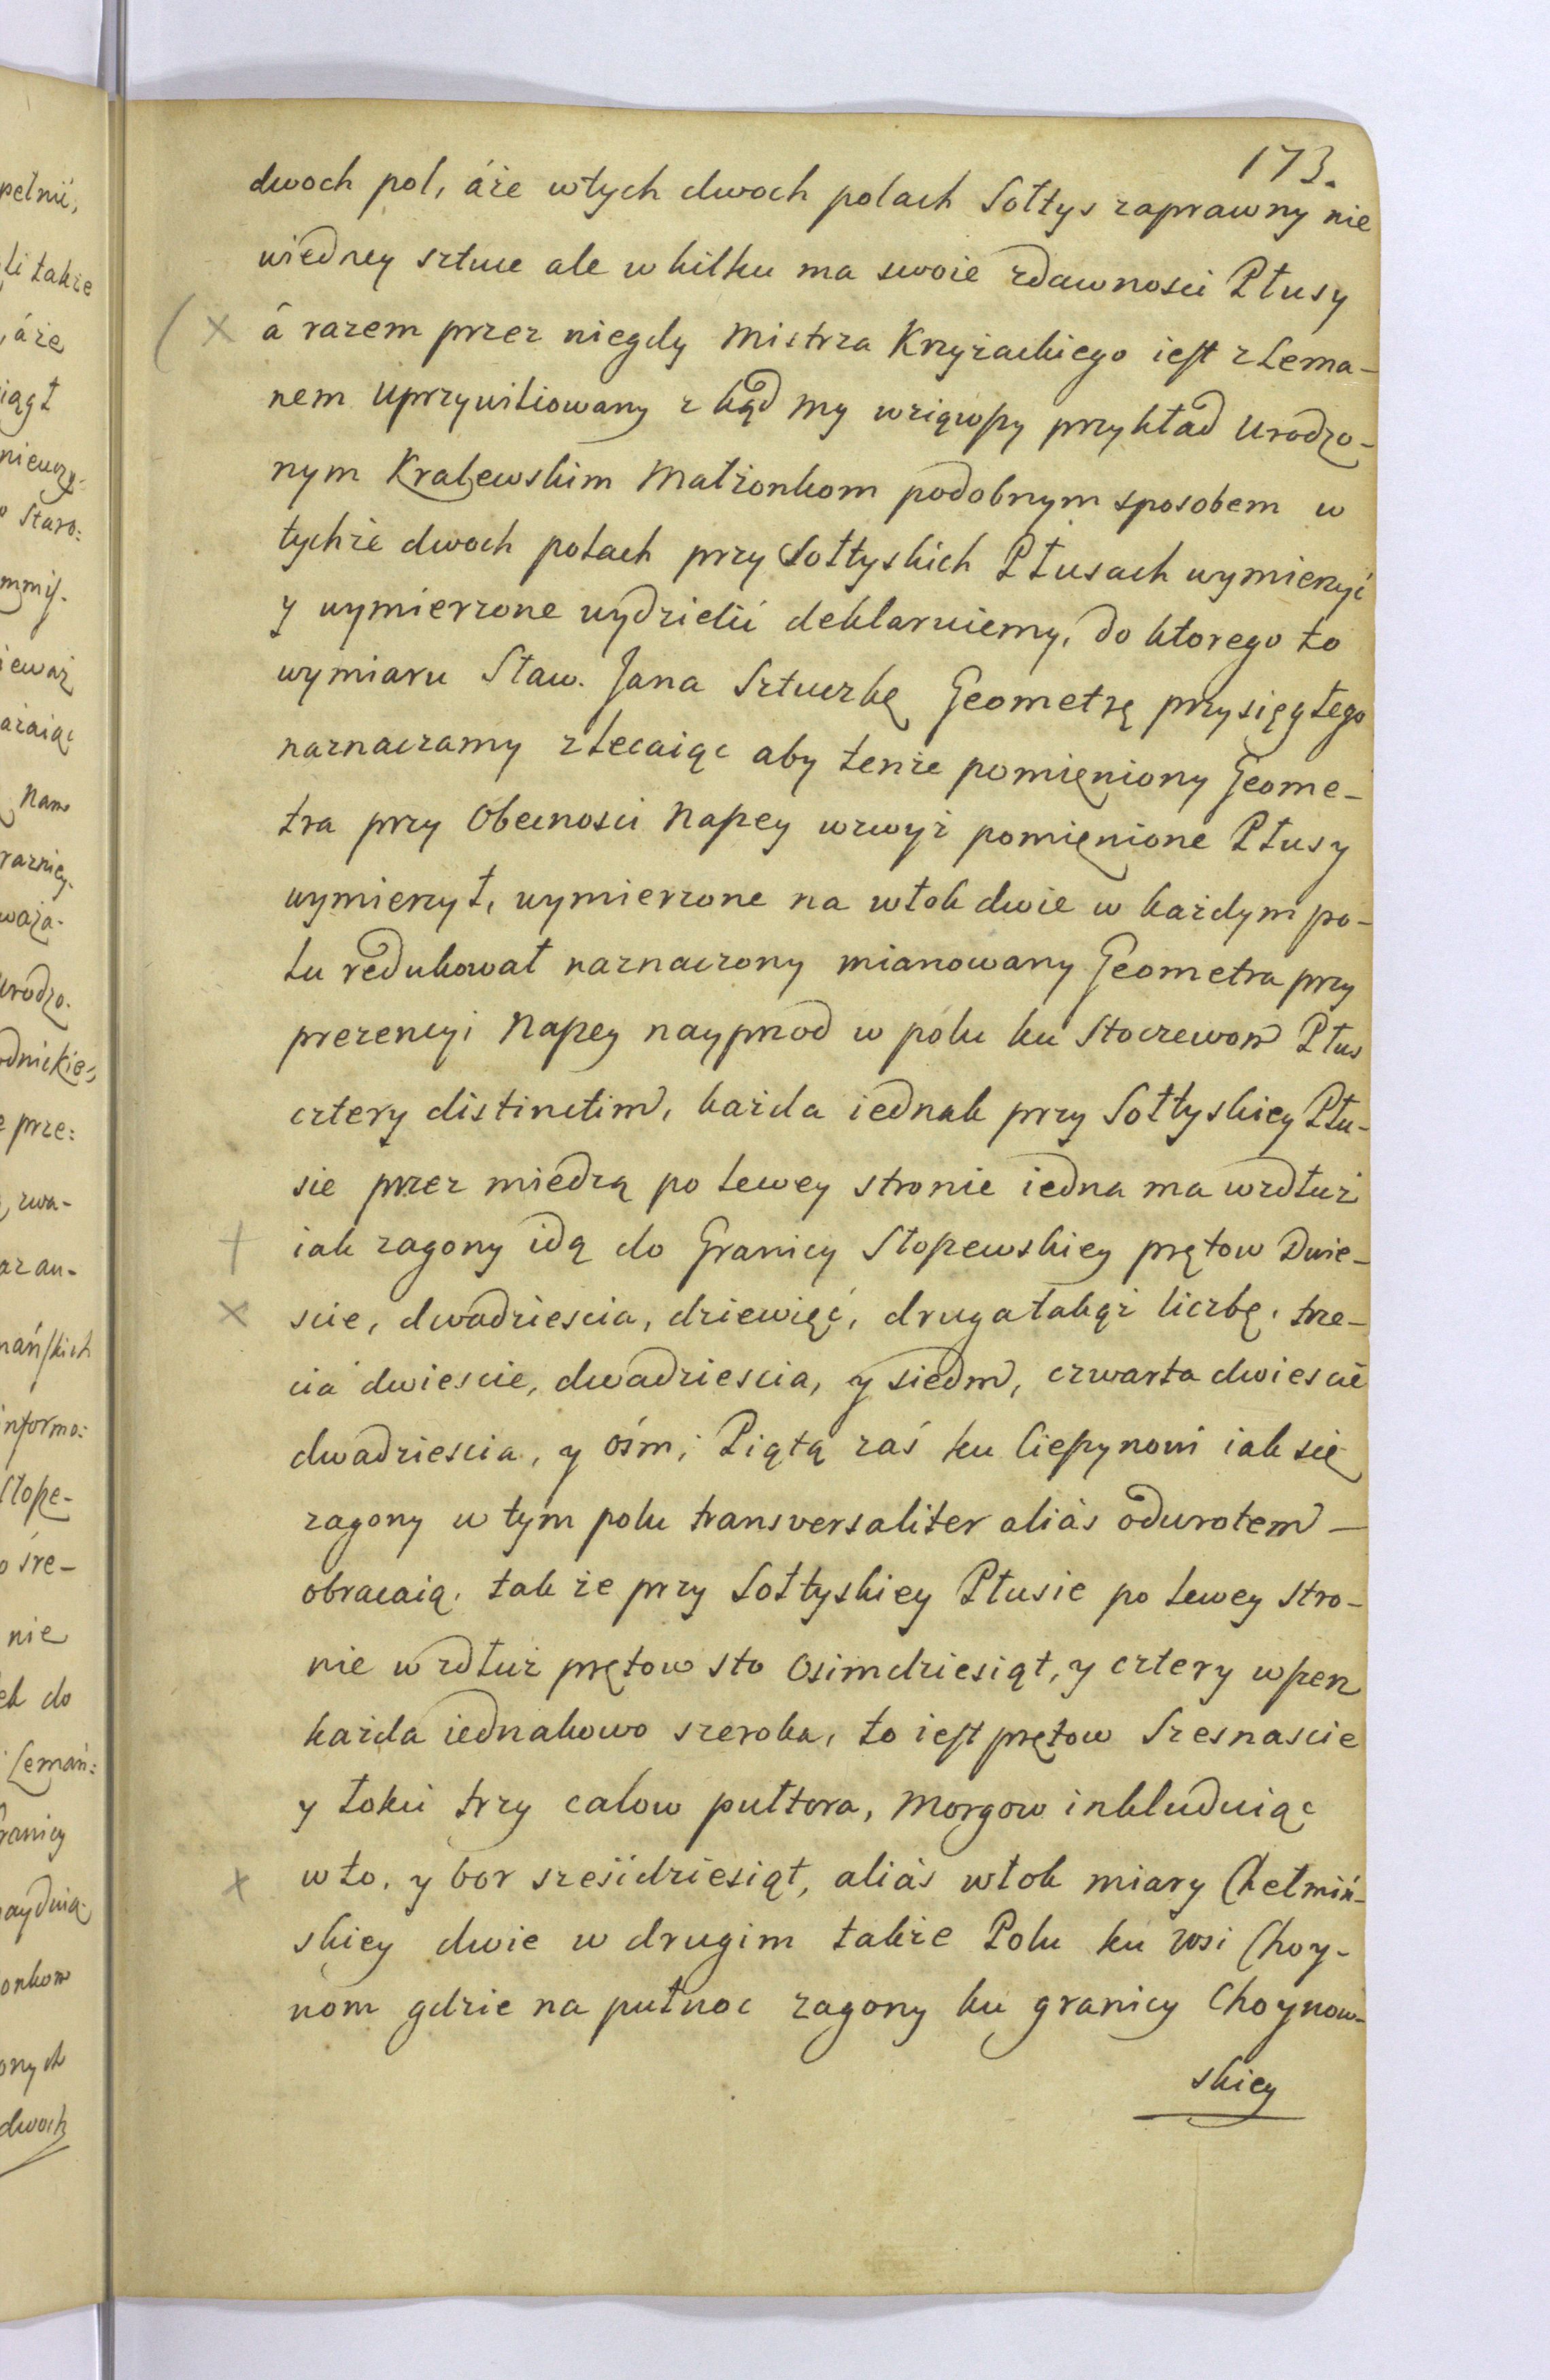 173.
dwoch pol, áże wtych dwoch polach Sołtys zaprawny nie
wiedney sztuce ale w kilku ma swoie zdawnosci Płusy
á razem przez niegdy Mistrza Krzyżackiego iest z Lema-
nem Uprzywiliowany z kąd my wziąwszy przykład Urodzo-
nym Kralewskim Małżonkom podobnym sposobem w
tychże dwoch polach przy Sołtyskich Płusach wymierzyć
y wymierzone wydzielić deklaruiemy, do ktorego to
wymiaru Sław. Jana Sztuczkę Geometrę przysięgłego
naznaczamy zlecaiąc aby tenże pomięniony Geome-
tra przy Obecnosci Naszey wzwyż pomięnione Płusy
wymierzył, wymierzone na włok dwie w każdym po-
lu redukował naznaczony mianowany Geometra przy
prezencyi Naszey nayprzod w polu ku Stoczewom Płus
cztery distinctim, każda iednak przy Sołtyskiey Płu-
sie przez miedzą po lewey stronie iedna ma wzdłuż
iak zagony idą do Granicy Stoszewskiey prętow Dwie-
scie, dwadziescia, dziewięć, druga takąż liczbę, trze-
cia dwiescie, dwadziescia, y siedm, czwarta dwiescie
dwadziescia, y ośm; Piątą zaś ku Cieszynowi iak się
zagony w tym polu transversaliter aliás odwrotem –
obracaią, tak że przy Sołtyskiey Płusie po lewey stro-
nie wzdłuż prętow sto Osimdziesiąt, y cztery wszerz
każda iednakowo szeroka, to iest prętow Szesnascie
y łokci trzy calow pułtora, Morgow inkluduiąc
w to, y bor sześćdziesiąt, aliás włok miary Chełmiń-
skiey dwie w drugim także Polu ku wsi Choy-
nom gdzie na pułnoc zagony ku granicy Choynow-
skiey
pełnić,
li także
, áże
Staro:
ieważ
ażaiąc
Nam
Urodzo.
prze:
zwa-
informo:
Stosze-
o śre-
nie
ek do
Lemań:
Granicy
onkom
onych
dwoch